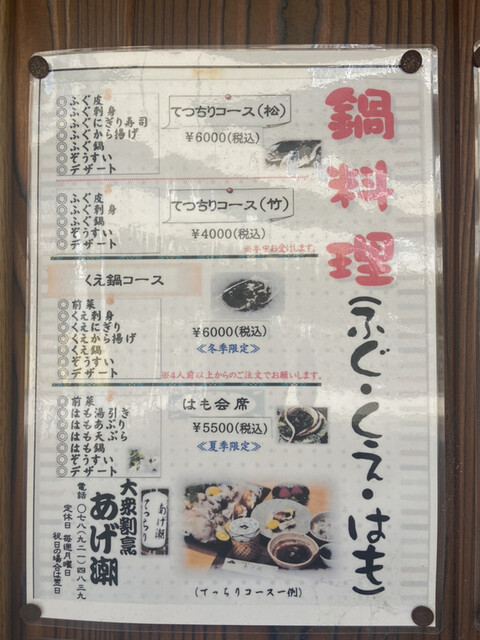 鍋料理(ふぐ・くえ・はも)
てっちりコース(松)
¥6000(税込)
◎ふぐ皮
◎ふぐ刺身
◎ふぐにぎり寿司
◎ふぐから揚げ
◎ふぐ鍋
◎ぞうすい
◎デザート
てっちりコース(竹)
¥4000(税込)
◎ふぐ皮
◎ふぐ刺身
◎ふぐ鍋
◎ぞうすい
◎デザート
くえ鍋コース
¥6000(税込)
≪冬季限定≫
◎前菜
◎くえ刺身
◎くえにぎり
◎くえから揚げ
◎くえ鍋
◎ぞうすい
◎デザート
※4人前以上からのご注文でお願いします。
はも会席
¥5500(税込)
≪夏季限定≫
◎前菜
◎はも湯引き
◎はもあぶり
◎はも天ぷら
◎はも鍋
◎ぞうすい
◎デザート
あげ潮
てっちり
大衆割烹
あげ潮
電話 〇七八(九二一)四八三九
定休日 毎週月曜日
祝日の場合は翌日
(てっちりコース一例)